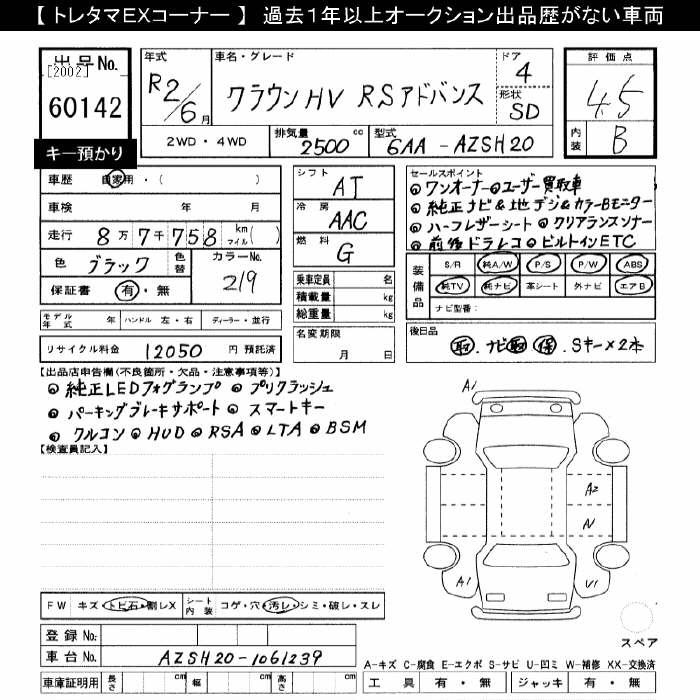 【 トレタマEXコーナー 】 過去1年以上オークション出品歴がない車両
出品No.
[2002]
60142
キー預かり
年式
R2/6月
車名・グレード
クラウンHV RSアドバンス
ドア
4
形状
SD
2WD・4WD
排気量
2500 cc
型式
6AA - AZSH20
評価点
4.5
内装
B
車歴 自家用・( )
車検 年 月
走行 8万7千758 km マイル( )
色 ブラック 色替 カラーNo. 219
保証書 有・無
モデル年式 年 ハンドル 左・右 ディーラー・並行
リサイクル料金 12050 円 預託済
シフト AT
冷房 AAC
燃料 G
乗車定員 名
積載量 kg
総重量 kg
名変期限
月 日
セールスポイント
◎ワンオーナー◎ユーザー買取車
◎純正ナビ&地デジ&カラーBモニター
◎ハーフレザーシート ◎クリアランスソナー
◎前後ドラレコ◎ビルトインETC
装備品
S/R 純A/W P/S P/W ABS
純TV 純ナビ 革シート 外ナビ エアB
ナビ型番:
後日品
取.ナビ取 保.Sキー×2本
【出品店申告欄(不良箇所・欠品・注意事項等)】
◎純正LEDフォグランプ ◎プリクラッシュ
◎パーキングブレーキサポート ◎スマートキー
◎クルコン◎HUD◎RSA◎LTA◎BSM
【検査員記入】
A1
A2
N
A1
V1
スペア
FW キズ・トビ石・割レX
シート内装 コゲ・穴・汚レ・シミ・破レ・スレ
登録No:
車台No: AZSH20-1061239
車庫証明用 長さ cm 幅 cm 高さ cm
A-キズ C-腐食 E-エクボ S-サビ U-凹ミ W-補修 XX-交換済
工具 有・無 ジャッキ 有・無